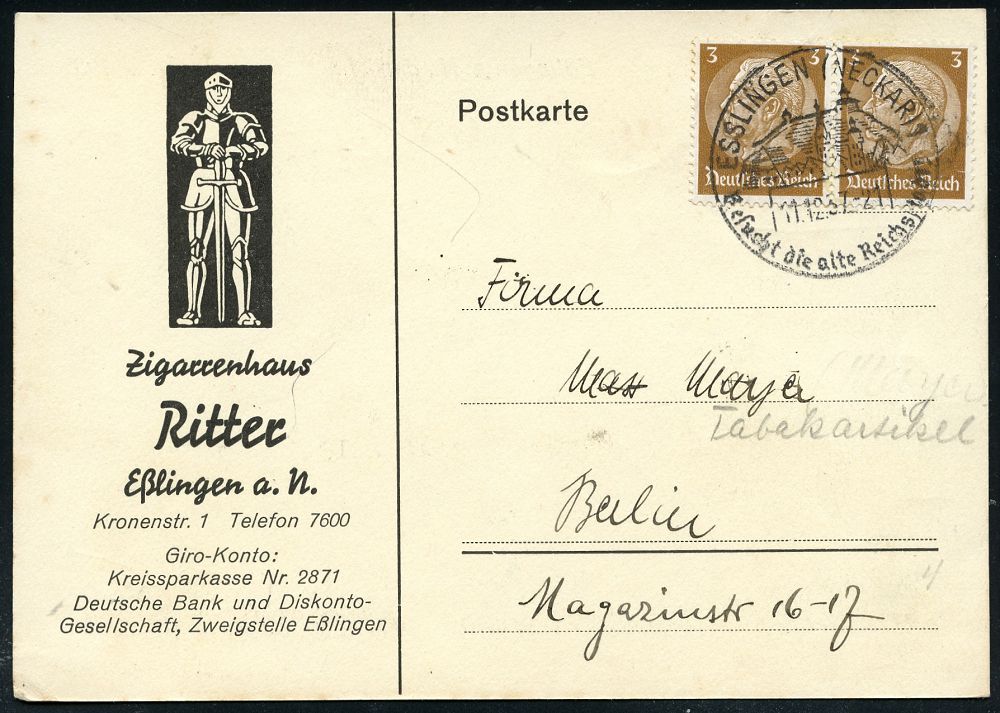 Zigarrenhaus
Ritter
Eßlingen a. N.
Kronenstr. 1 Telefon 7600
Giro-Konto:
Kreissparkasse Nr. 2871
Deutsche Bank und Diskonto-
Gesellschaft, Zweigstelle Eßlingen
Postkarte
3 3 3
Deutsches Reich Deutsches Reich
ESSLINGEN (NECKAR)
11.12.37.-21
Besucht die alte Reichsstadt
Firma
Max Mayer
Mayer
Tabakartikel
Berlin
4
Magazinstr 16-17